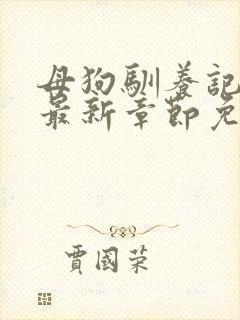 母狗馴養記
最新章節免
賈國荣